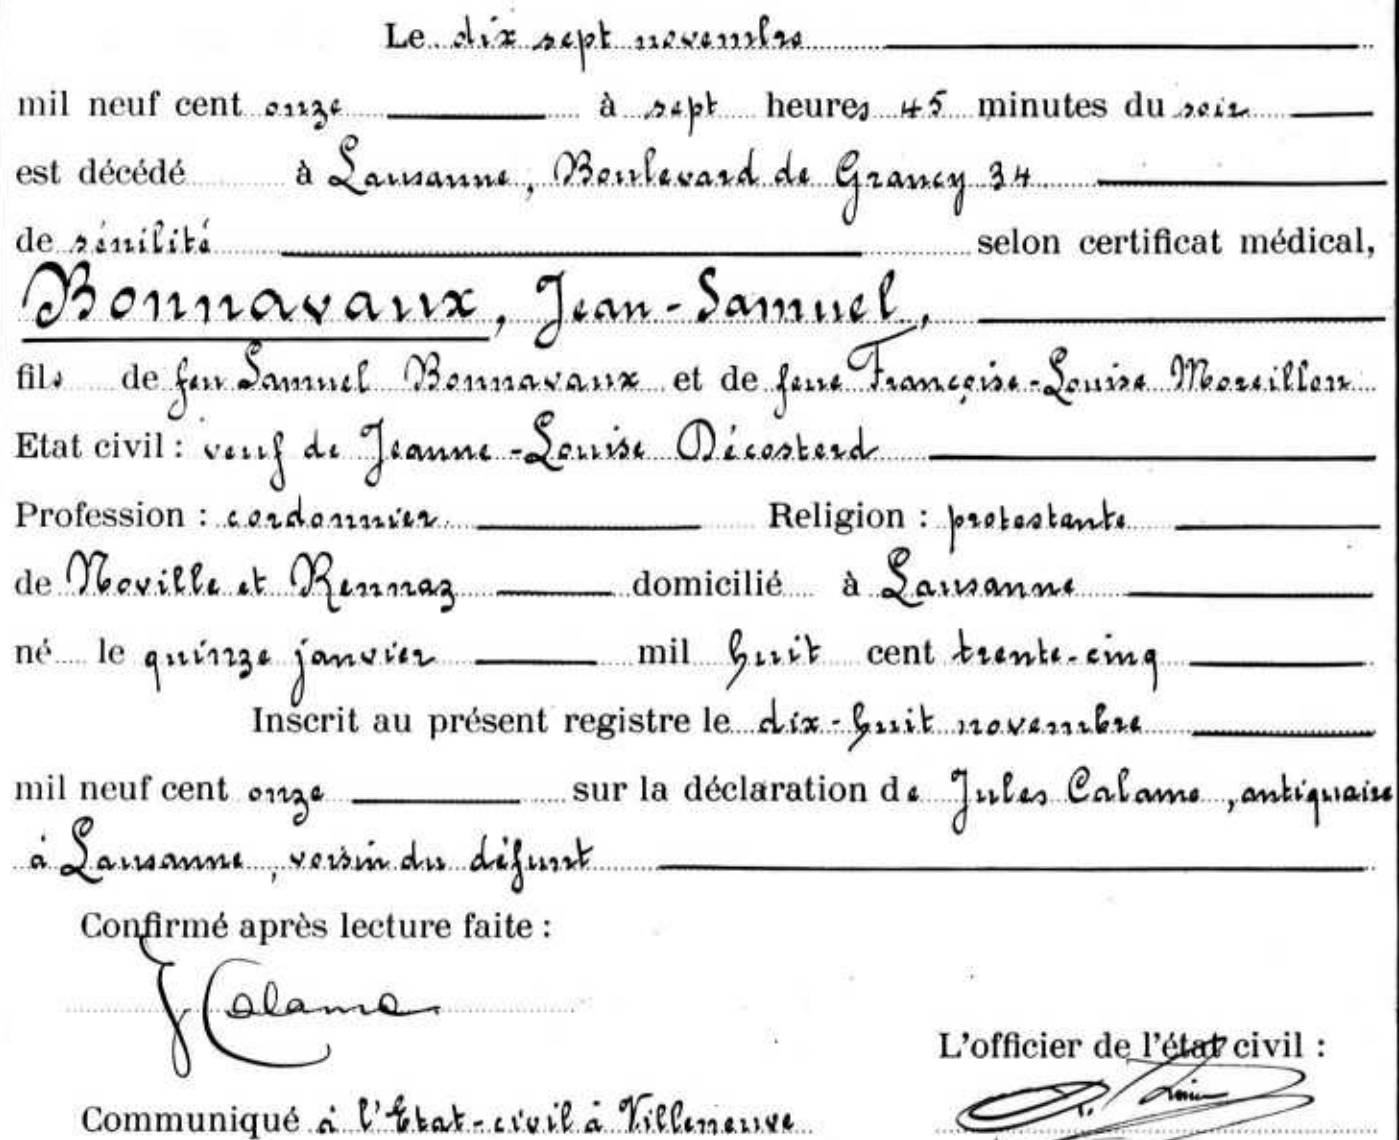 Le dix sept novembre
mil neuf cent onze à sept heures 45 minutes du soir
est décédé à Lausanne, Boulevard de Grancy 34
de sénilité selon certificat médical,
Bonnavaux, Jean-Samuel,
fils de feu Samuel Bonnavaux et de feue Françoise-Louise Moreillon
Etat civil : veuf de Jeanne-Louise Décosterd
Profession : cordonnier Religion : protestante
de Noville et Rennaz domicilié à Lausanne
né le quinze janvier mil huit cent trente-cinq
Inscrit au présent registre le dix-huit novembre
mil neuf cent onze sur la déclaration de Jules Calame, antiquaire
à Lausanne, voisin du défunt
Confirmé après lecture faite :
J Calame
L'officier de l'état civil :
Communiqué à l'Etat-civil à Villeneuve